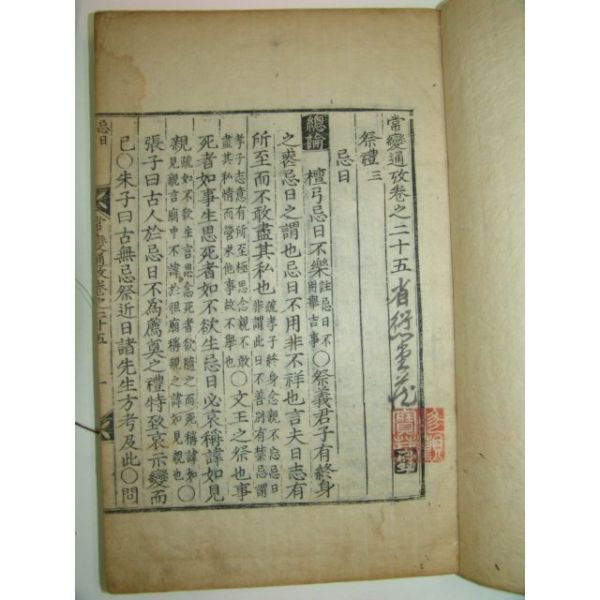 常變通攷卷之二十五
祭禮三
忌日
總論 檀弓忌日不樂註忌日不用擧吉事○祭義君子有終身
之喪忌日之謂也忌日不用非不祥也言夫日志有
所至而不敢盡其私也疏孝子終身念親不忘忌日非謂此日不善別有禁忌謂
孝子志意有所至極思念親不敢盡其私情而營求他事故不擧也○文王之祭也事
死者如事生思死者如不欲生忌日必哀稱諱如見
親疏如不欲生言思念死者欲隨之而死稱諱如見親言廟中不諱於祖廟稱親之諱如見親也○
張子曰古人於忌日不為薦奠之禮特致哀示變而
已○朱子曰古無忌祭近日諸先生方考及此○問
忌日
常變通攷卷之二十五
一